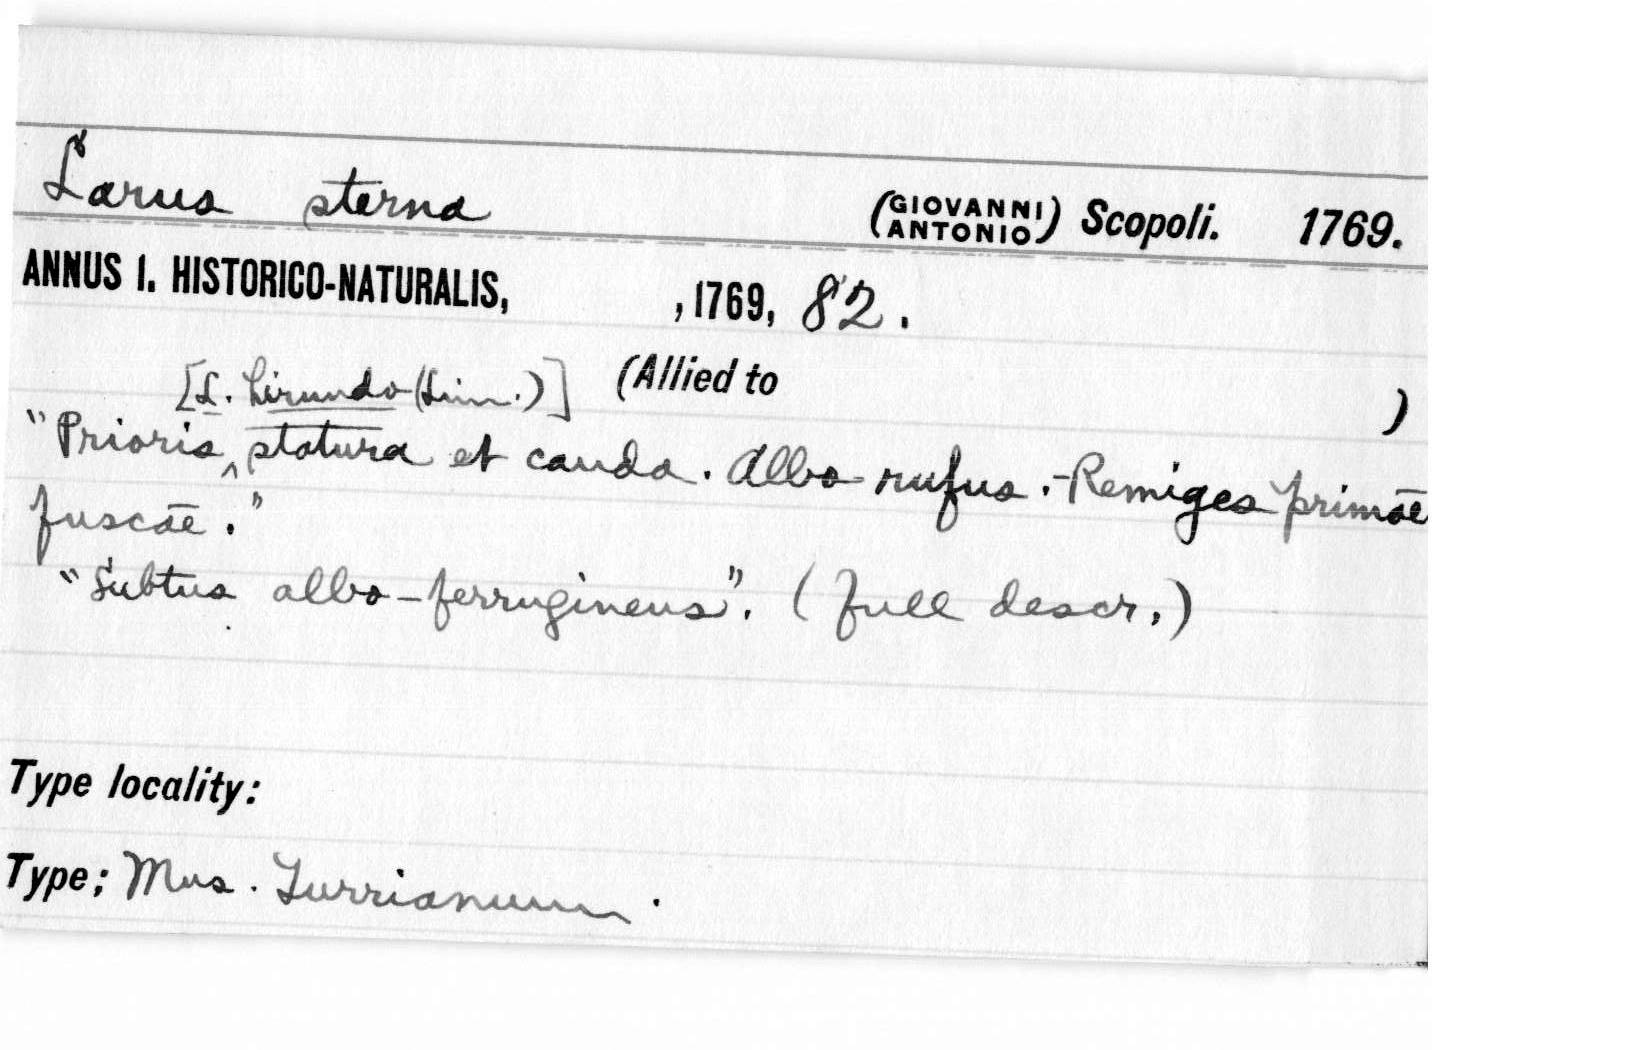 Larus sterna (GIOVANNI ANTONIO) Scopoli. 1769.
ANNUS I. HISTORICO-NATURALIS, , 1769, 82.
[L. hirundo (Linn.)] (Allied to )
"Prioris ^ statura et cauda. Albo-rufus.-Remiges primae
fuscae."
"Subtus albo-ferrugineus". (full descr.)
Type locality:
Type; Mus. Turrianum.